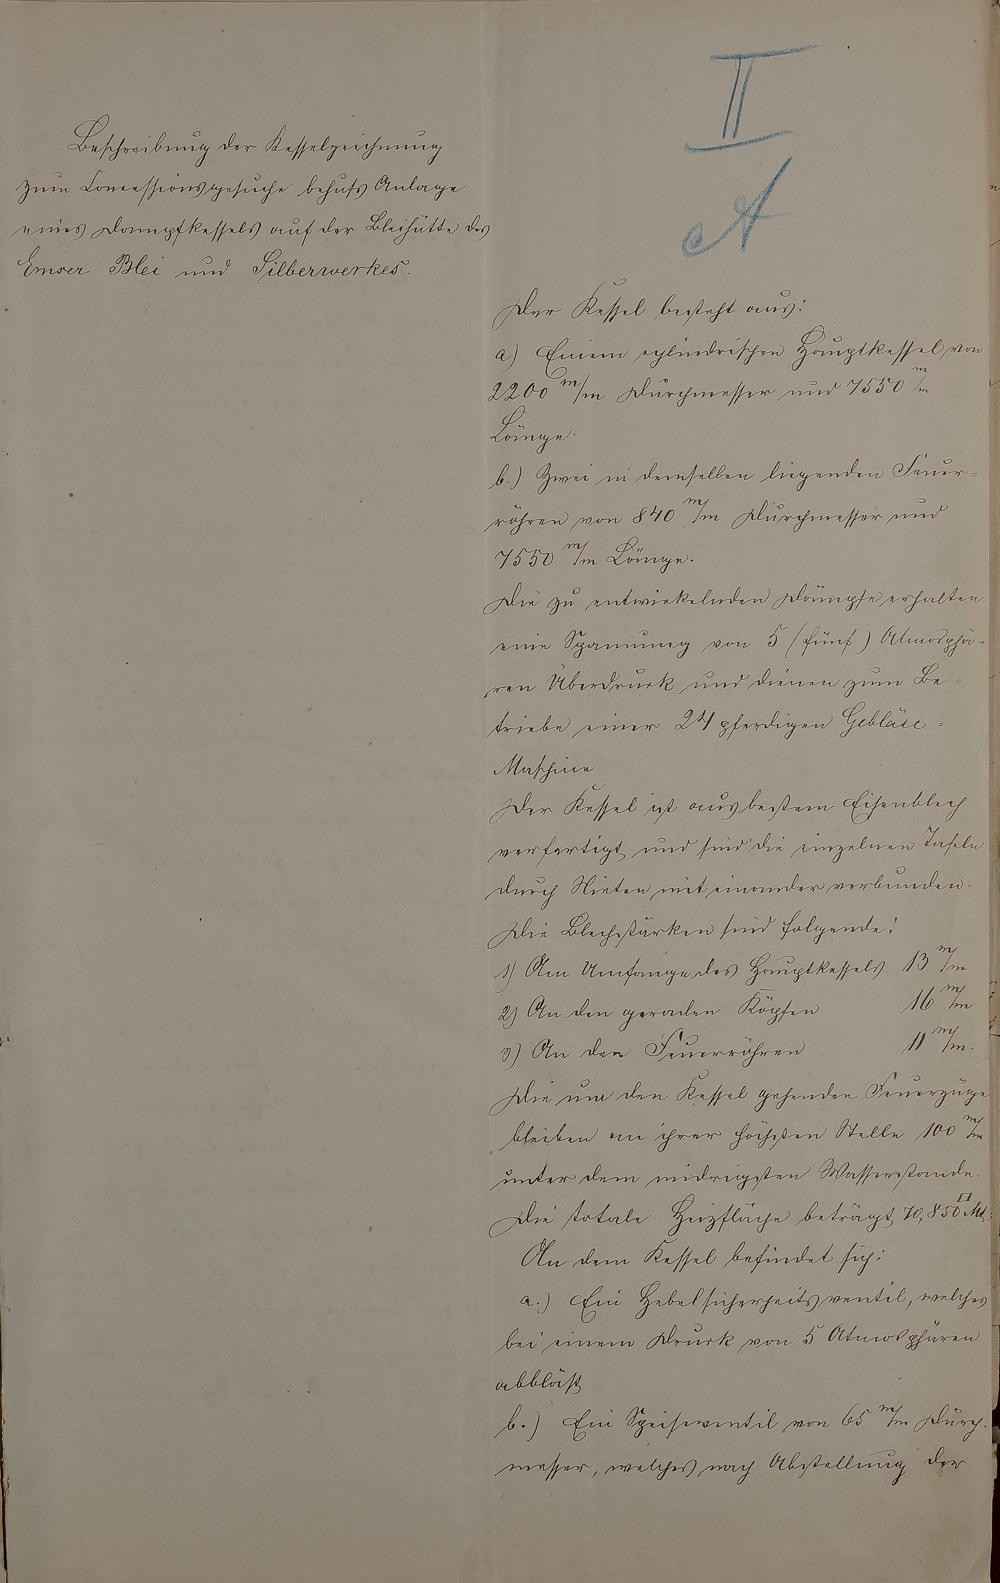 II
A
Beschreibung der Kesselzeichnung
zum Concessionsgesuche behufs Anlage
eines Dampfkessels auf der Bleihütte des
Emser Blei und Silberwerkes.
Der Kessel besteht aus:
a) Einem cylindrischen Hauptkessel von
2200 m/m Durchmesser und 7550 m/m
Länge.
b.) Zwei in demselben liegenden Feuer-
röhren von 840 m/m Durchmesser und
7550 m/m Länge.
Die zu entwickelnden Dämpfe erhalten
eine Spannung von 5 (fünf) Atmosphä-
ren Überdruck und dienen zum Be-
triebe einer 24 pferdigen Gebläse-
Maschine
Der Kessel ist aus bestem Eisenblech
verfertigt und sind die einzelnen Tafeln
durch Nieten mit einander verbunden.
Die Blechstärken sind folgende:
1) Am Umfange des Hauptkessels 13 m/m
2) An den geraden Köpfen 16 m/m
3) An den Feuerröhren 11 m/m.
Die um den Kessel gehenden Feuerzüge
bleiben an ihrer höchsten Stelle 100 m/m
unter dem niedrigsten Wasserstande.
Die totale Heizfläche beträgt 70,850 □ Mt.
An dem Kessel befindet sich:
a.) Ein Hebelsicherheitsventil, welches
bei einem Druck von 5 Atmosphären
abbläst
b.) Ein Speiseventil von 65 m/m Durch-
messer, welches nach Abstellung der